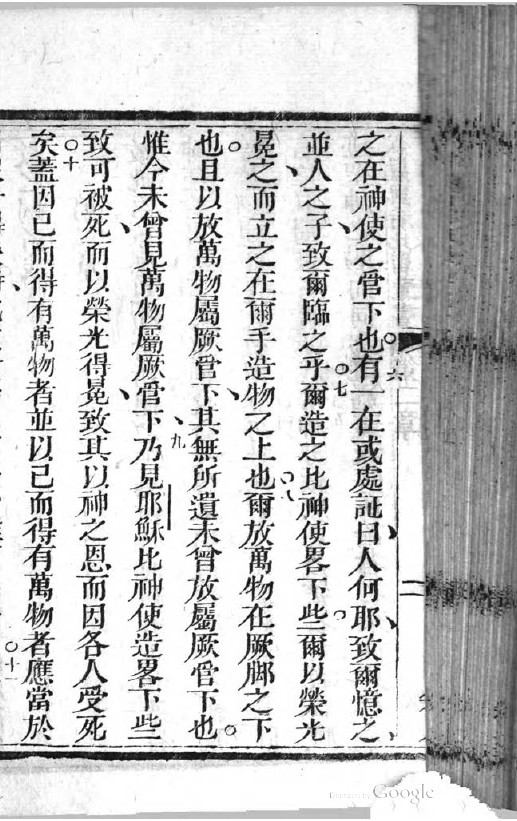 之在神使之管下也○六有一在或處証曰人何耶致爾憶之
並人之子致爾臨之乎○七爾造之比神使畧下些爾以榮光
冕之而立之在爾手造物之上也○八爾放萬物在厥脚之下
也且以放萬物屬厥管下其無所遺未曾放屬厥管下也
惟今未曾見萬物屬厥管下九乃見耶穌比神使造畧下些
致可被死而以榮光得冕致其以神之恩而因各人受死
矣○十蓋因己而得有萬物者並以己而得有萬物者○十一應當於
Digitized by Google